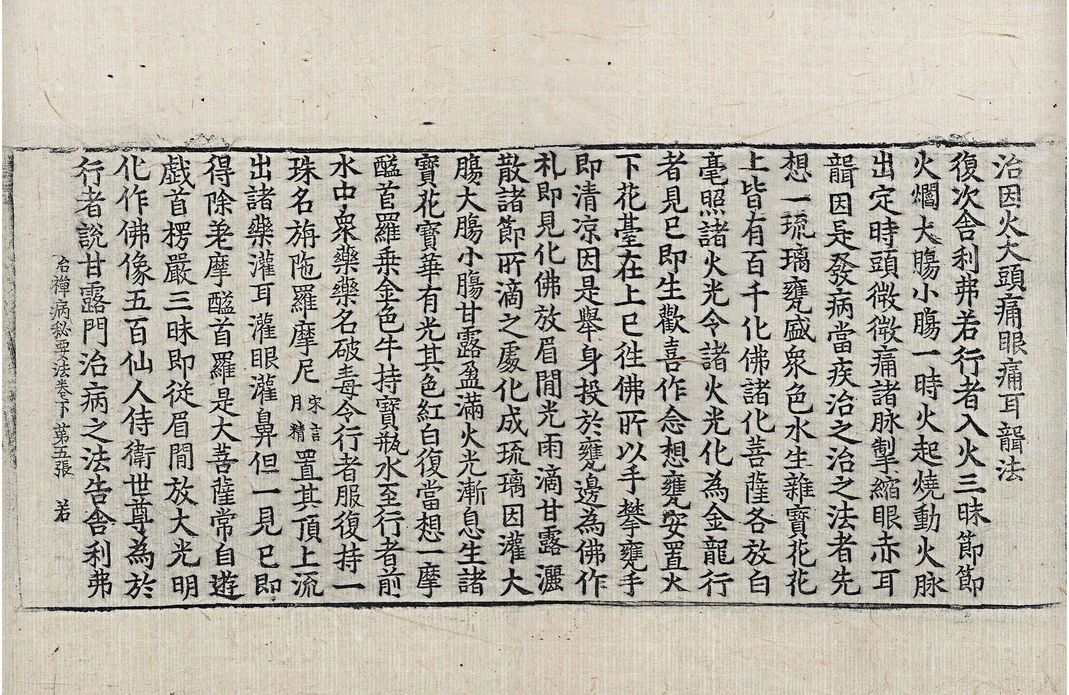 治因火大頭痛眼痛耳聾法
復次舍利弗若行者入火三昧節節
火爛大腸小腸一時火起燒動火脉
出定時頭微微痛諸脉掣縮眼赤耳
聾因是發病當疾治之治之法者先
想一琉璃甕盛衆色水生雜寶花花
上皆有百千化佛諸化菩薩各放白
毫照諸火光令諸火光化為金龍行
者見已即生歡喜作念想甕安置火
下花臺在上已往佛所以手攀甕手
即清涼因是舉身投於甕邊為佛作
礼即見化佛放眉閒光雨滴甘露灑
散諸節所滴之處化成琉璃因灌大
腸大腸小腸甘露盈滿火光漸息生諸
寶花寶華有光其色紅白復當想一摩
醯首羅乗金色牛持寶瓶水至行者前
水中衆藥藥名破毒令行者服復持一
珠名旃陁羅摩尼宋言月精置其頂上流
出諸藥灌耳灌眼灌鼻但一見已即
得除差摩醯首羅是大菩薩常自遊
戲首楞嚴三昧即從眉閒放大光明
化作佛像五百仙人侍衛世尊為於
行者說甘露門治病之法告舍利弗
治禪病秘要法卷下 第五張 若